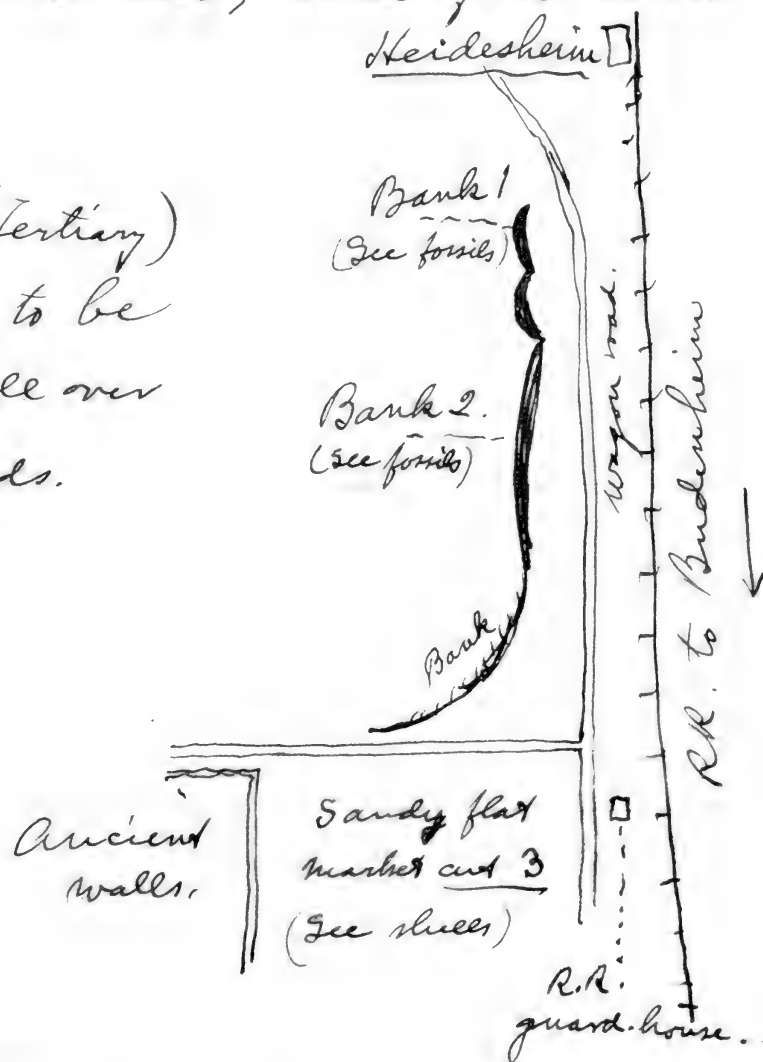 Heidesheim
Tertiary)
to be
over
ds.
Bank 1
(See fossils)
Bank 2.
(See fossils)
wagon road.
R.R. to Budenheim
Bank
Ancient
walls.
Sandy flat
3
(See
R.R.
guard-house.